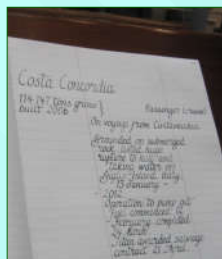 Costa Concordia
114 147 tons gross }
built 2006
Passenger (cruise)
On voyage from Civitavecchia
Grounded on submerged
rock which made
rupture to hull and
taking water off
Giglio Island, Italy
13 January -
Operation to pump out
fuel commenced 12
February completed
24 March
Titan awarded salvage
contract 21 April